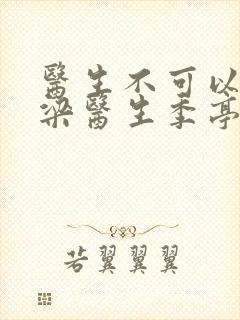 醫生不可以
梁醫生季亭
若翼翼翼